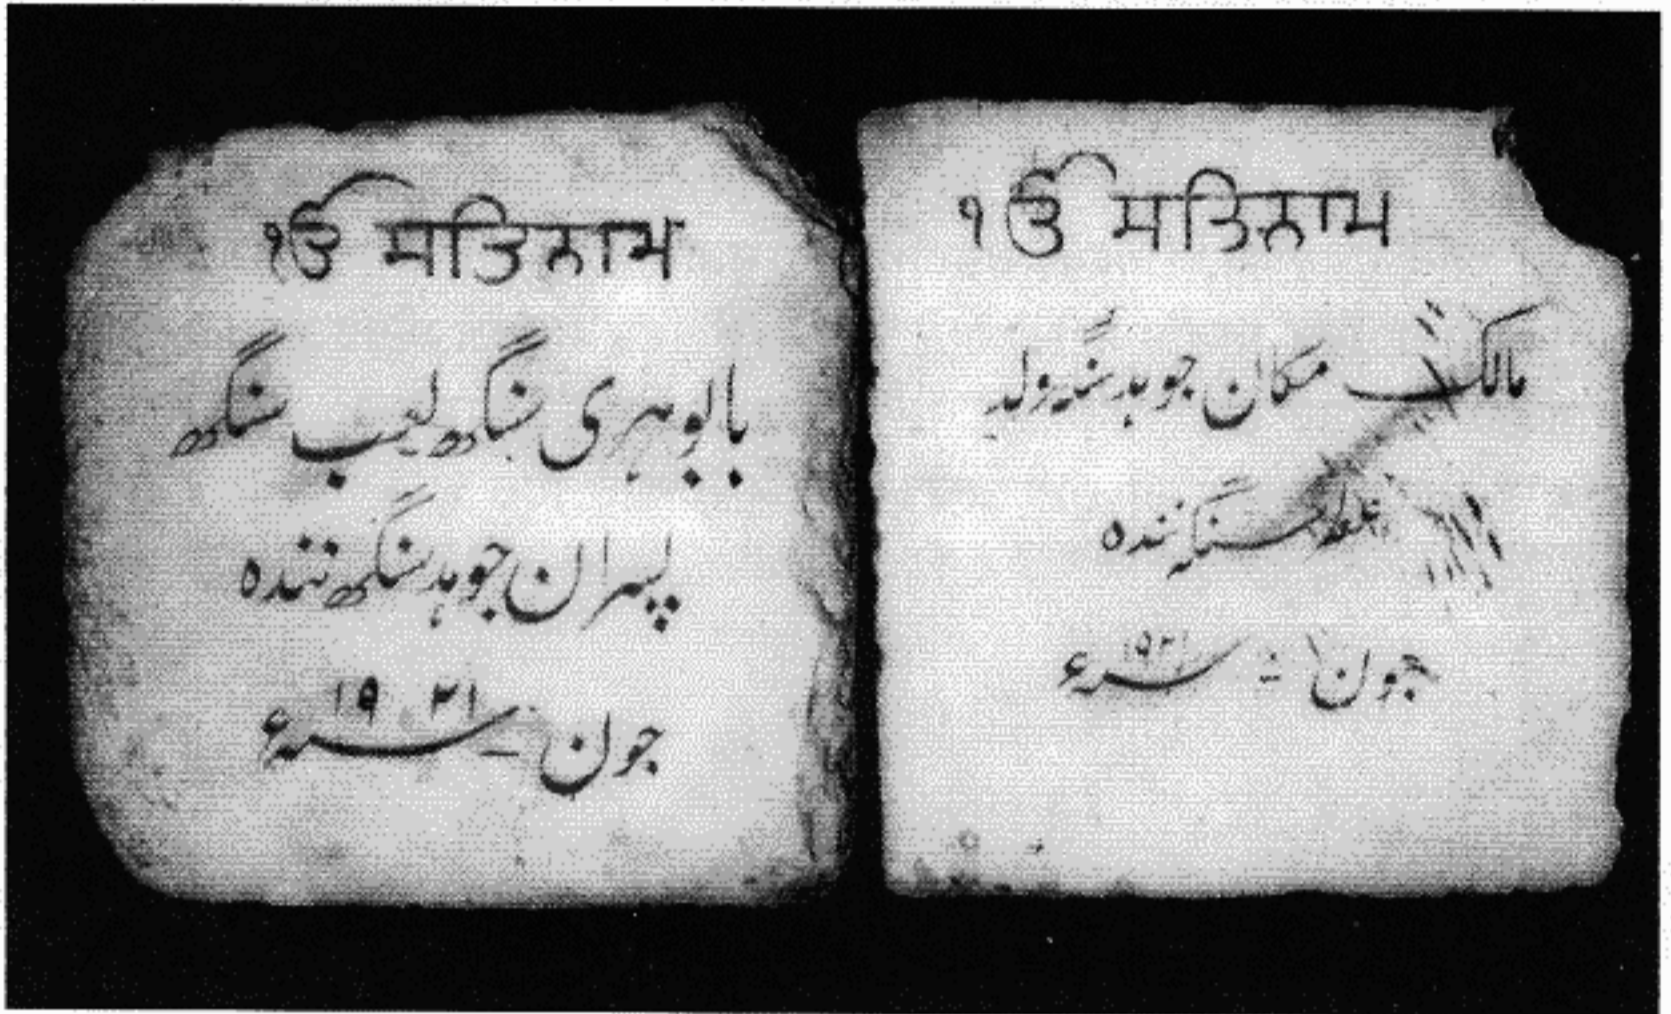 ੴ ਸਤਿਨਾਮ
بابو ہری سنگھ لعب سنگھ
پسران جوہد سنگھ نندہ
جون ۱۹۲۱ء
ੴ ਸਤਿਨਾਮ
مالک مکان جوہد سنگہ ولد
سنگہ نندہ
جون ۱۹۲۱ء